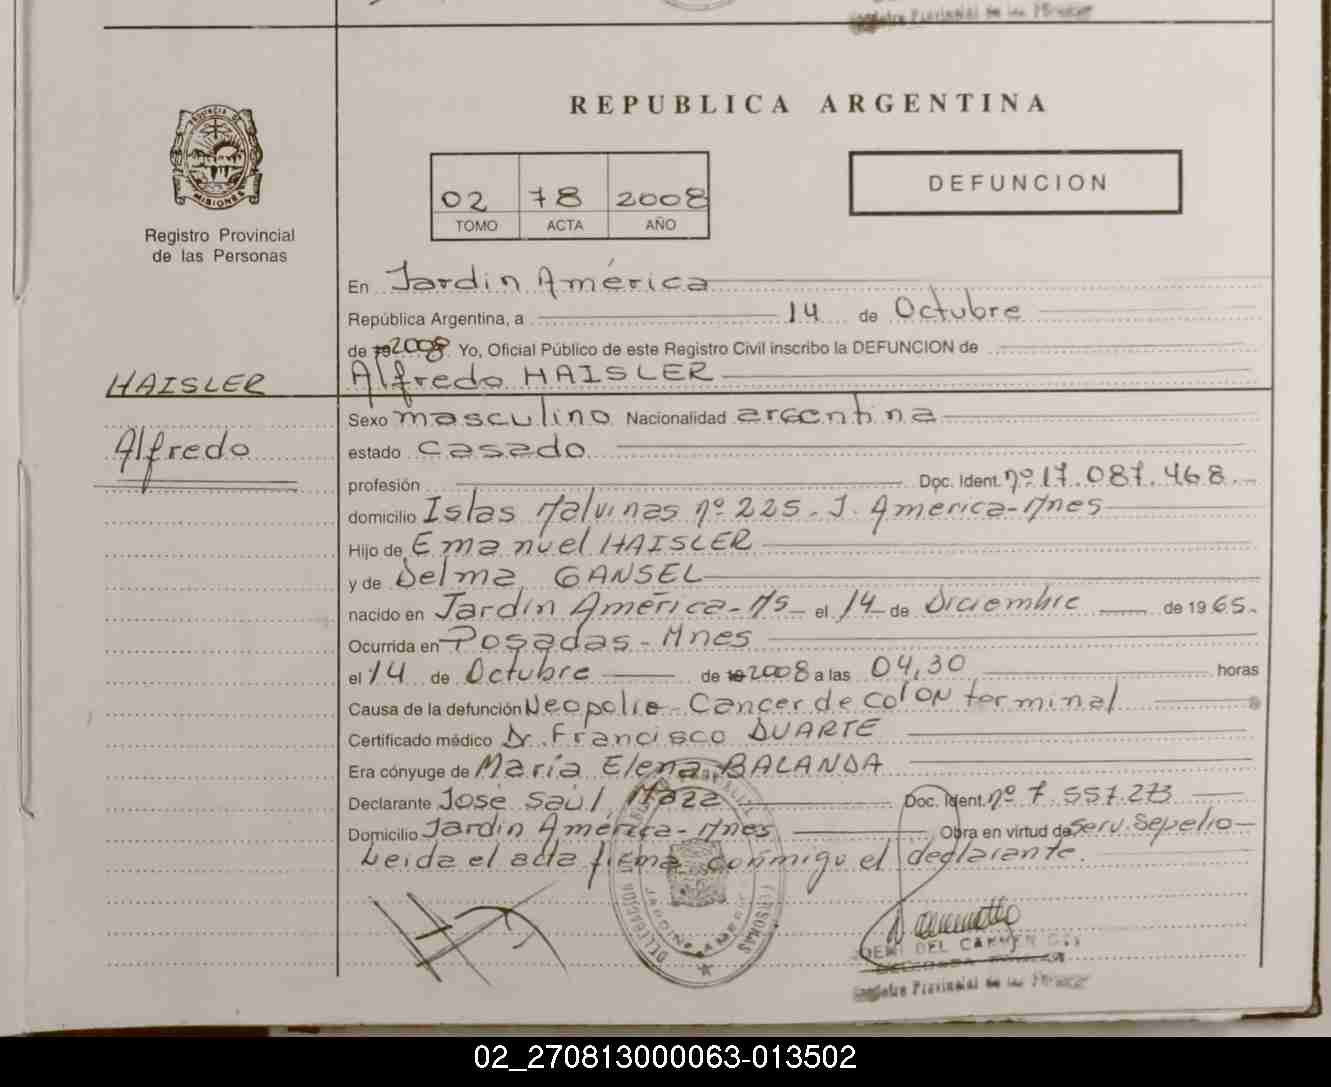 REPUBLICA ARGENTINA
PROVINCIA DE
MISIONES
Registro Provincial
de las Personas
02 78 2008
TOMO ACTA AÑO
DEFUNCION
En Jardin América
República Argentina, a 14 de Octubre
de 2008 Yo, Oficial Público de este Registro Civil inscribo la DEFUNCION de
HAISLER
Alfredo HAISLER
Alfredo
Sexo masculino Nacionalidad argentina
estado casado
profesión Doc. Ident. nº 17.087.468.
domicilio Islas Malvinas nº 225. J. America-Mnes
Hijo de Emanuel HAISLER
y de Delma GANSEL
nacido en Jardin América-Ms el 14 de Diciembre de 1965.
Ocurrida en Posadas-Mnes
el 14 de Octubre de 2008 a las 04,30 horas
Causa de la defunción Cancer de colon terminal
Certificado médico Dr. Francisco DUARTE
Era cónyuge de María Elena BALANDA
Declarante José Saúl Doc. Ident. nº 7.557.273
Domicilio Jardin América-Mnes Obra en virtud de Serv. Sepelio
Leida el acta firma conmigo el declarante.
DEL CARMEN
Registro Provincial de las Personas
02_270813000063-013502